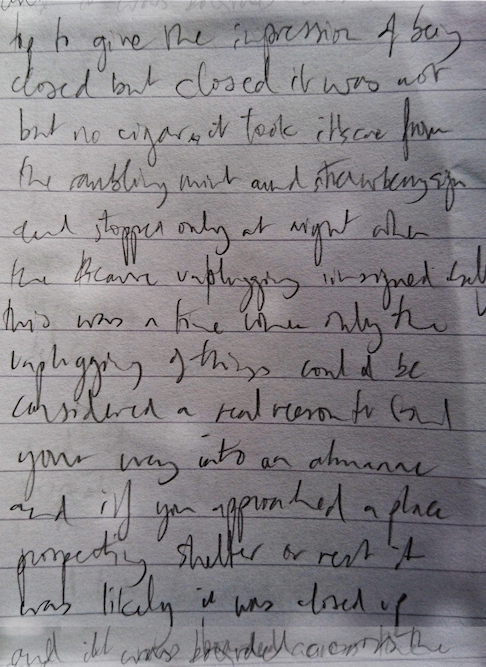 to give the impression of being
closed but closed it was not
but no cigar it took its from
the rambling mint and
and stopped only at night when
the unplugging
this was a time when only the
unplugging of things could be
considered a real reason to find
your way into an almanac
and if you approached a place
prospecting shelter or rest it
was likely it was closed up
and it was boarded across the